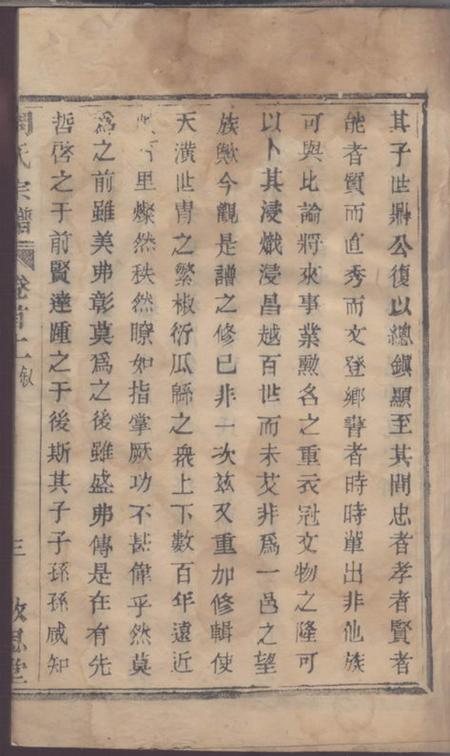 其子世鼎公復以總鎮顯至其間忠者孝者賢者
能者質而直秀而文登鄉書者時時輩出非他族
可與比論將來事業勲名之重衣冠文物之隆可
以卜其浸熾浸昌越百世而未艾非為一邑之望
族歟今觀是譜之修已非一次茲又重加修輯使
天潢世胄之繁椒衍瓜緜之衆上下數百年遠近
里燦然秩然瞭如指掌厥功不甚偉乎然莫
為之前雖美弗彰莫為之後雖盛弗傳是在有先
哲啓之于前賢達踵之于後斯其子子孫孫咸知
氏宗譜 卷首上 叙 三 堂